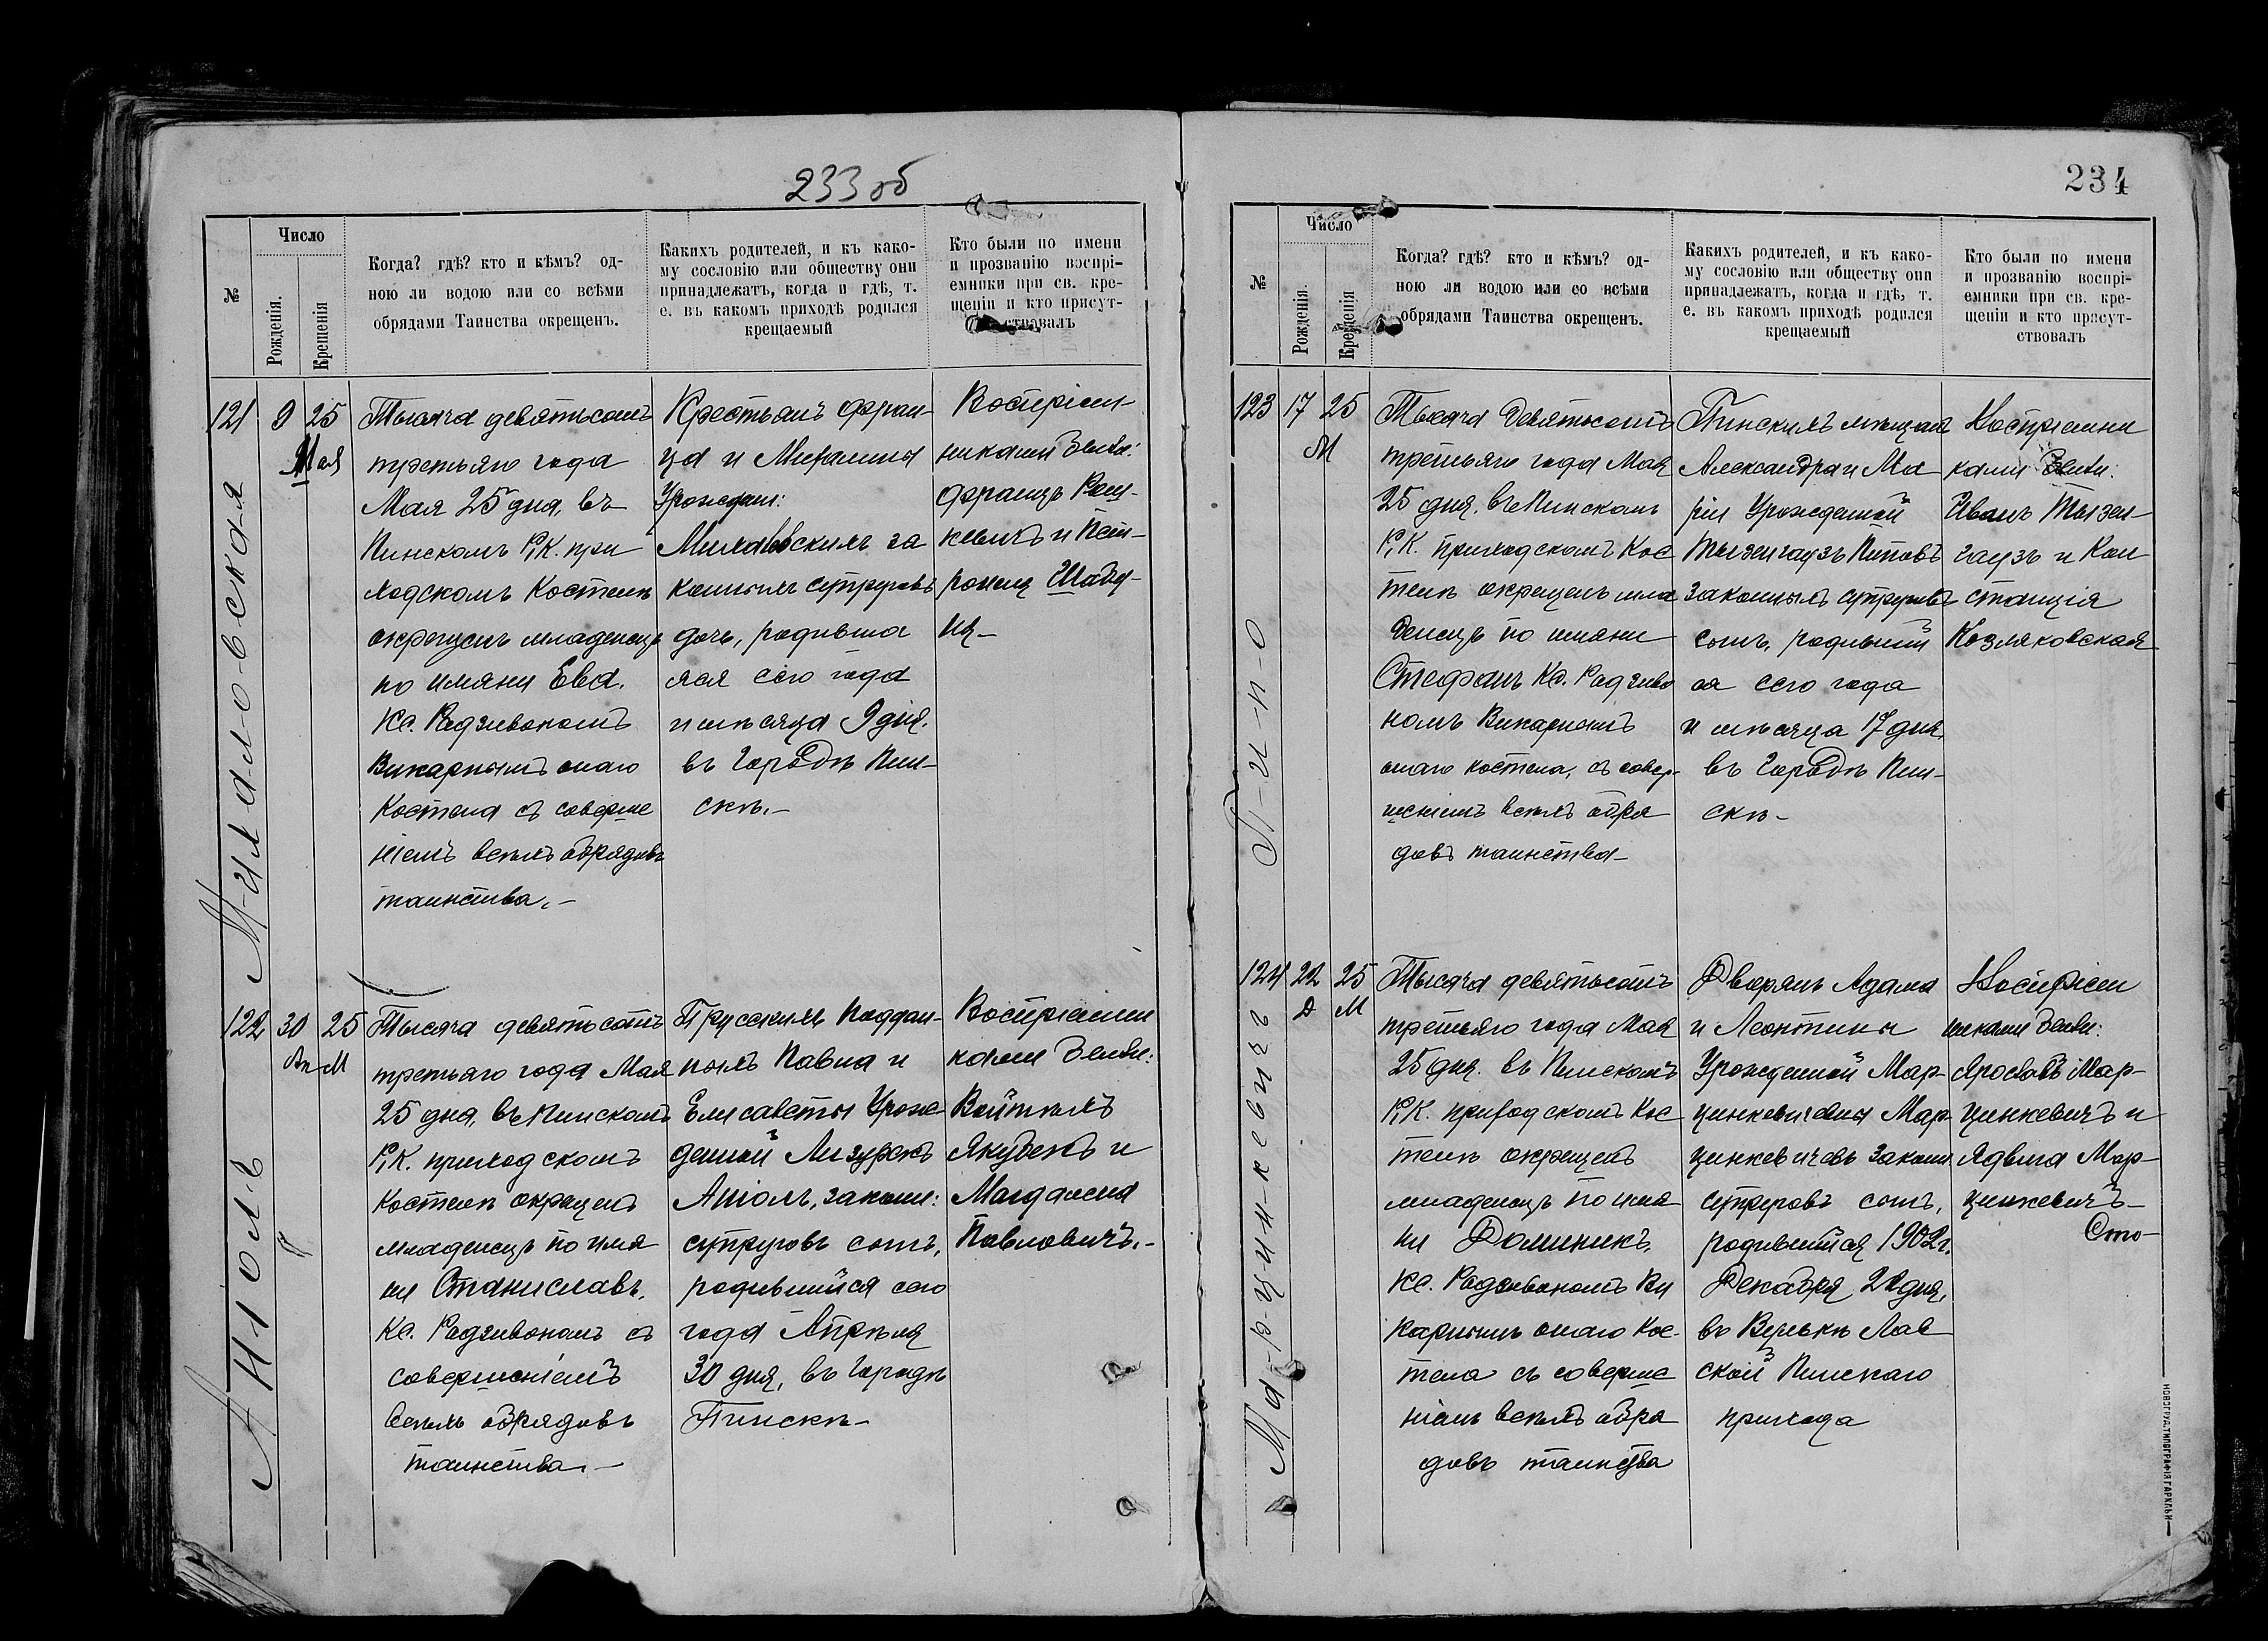 233 об
№
Число
Рожденія.
Крещенія
Когда? гдѣ? кто и кѣмъ? од-
ною ли водою или со всѣми
обрядами Таинства окрещенъ.
Какихъ родителей, и къ како-
му сословію или обществу они
принадлежатъ, когда и гдѣ, т.
е. въ какомъ приходѣ родился
крещаемый
Кто были по имени
и прозванію воспрі-
емники при св. кре-
щеніи и кто присут-
ствовалъ
М-и-л-а-л-о-в-с-к-а-я
121 9 25
Мая
Тысяча девятьсотъ
третьяго года
Мая 25 дня, въ
Пинскомъ Р. К. при
ходскомъ Костелѣ
окрещенъ младенецъ
по имяни Ева.
Кс. Радзивономъ
Викарнымъ онаго
Костела съ соверше
ніемъ всѣхъ обрядовъ
таинства.-
Крестьянъ Фран-
ца и Михалины
Урожден:
за
конныхъ супруговъ
дочь, родивша
яся сего года
и мѣсяца 9 дня.
въ Городѣ Пин-
скѣ.-
Воспріем-
никами были:
Францъ
и Пет-
122 30 25
Ап М
А Н І О Л Ъ
Тысяча девятьсотъ
третьяго года Мая
25 дня, въ Пинскомъ
Р. К. приходскомъ
Костелѣ окрещенъ
младенецъ по имя
ни Станиславъ.
Кс. Радзивономъ съ
совершеніемъ
всѣхъ обрядовъ
таинства.-
Прусскихъ поддан-
ныхъ Павла и
Елисаветы Урож-
денной Лизурекъ
Аніолъ, законн:
супруговъ сынъ,
родившійся сего
года Апрѣля
30 дня, въ Городѣ
Пинскѣ-
Воспріемни
ками были:
Войтѣхъ
Якубекъ и
Магдалена
Павловичъ.-
234
№
Число
Рожденія.
Крещенія
Когда? гдѣ? кто и кѣмъ? од-
ною ли водою или со всѣми
обрядами Таинства окрещенъ.
Какихъ родителей, и къ како-
му сословію или обществу они
принадлежатъ, когда и гдѣ, т.
е. въ какомъ приходѣ родился
крещаемый
Кто были по имени
и прозванію воспрі-
емники при св. кре-
щеніи и кто присут-
ствовалъ
123 17 25
М
П-и-п-о
Тысяча девятьсотъ
третьяго года Мая
25 дня. въ Пинскомъ
Р. К. приходскомъ Кос
телѣ окрещенъ мла
денецъ по имяни
Стефанъ Кс. Радзиво
номъ Викарнымъ
онаго костела, съ совер-
шеніемъ всѣхъ обря
довъ таинства-
Пинскихъ мѣщанъ
Александра и Ма
ріи Урожденной
Тызенгаузъ Пиповъ
законныхъ супруговъ
сынъ, родивший
ся сего года
и мѣсяца 17 дня,
въ Городѣ Пин-
скѣ-
Воспріемни
ками были:
Иванъ Тызен-
гаузъ и Кон
станція
Козляковская
124 22 25
Д М
М-а-р-ц-и-н-к-е-в-и-ч-ъ
Тысяча девятьсотъ
третьяго года Мая
25 дня. въ Пинскомъ
Р. К. приходскомъ Кос
телѣ окрещенъ
младенецъ по имя
ни Доминикъ.
Кс. Радзивономъ Ви
карнымъ онаго Кос-
тела съ соверше
ніемъ всѣхъ обря
довъ таинства
Дворянъ Адама
и Леонтины
Урожденной Мар-
цинкевичевны Мар-
цинкевичевъ законн
супруговъ сынъ,
родившійся 1902 г.
Декабря 22 дня,
въ
ской Пинскаго
прихода
Воспріем
никами были:
Ярославъ Мар-
цинкевичъ и
Ядвига Мар-
цинкевичъ-
Сто-
НОВОГРУД. ТИПОГРАФІЯ ГАРКАВИ